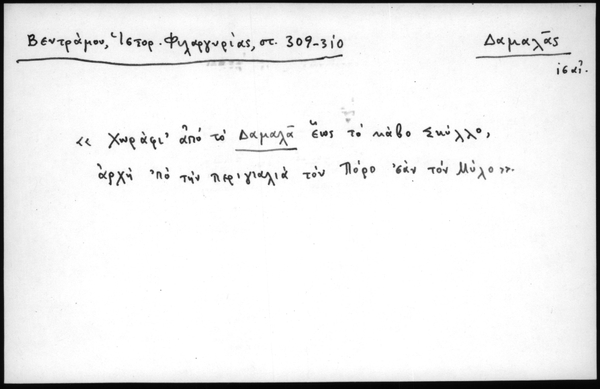 Βεντράμου, Ἱστορ. Φιλαργυρίας, στ. 309-310
Δαμαλᾶς
ις αἰ.
« Χωράφι' ἀπό τὸ Δαμαλᾶ ἕως τὸ κάβο Σκύλλο,
ἀρχὴ 'πό τὴν περιγιαλιά τὸν Πόρο 'σὰν τὸν Μύλο ».